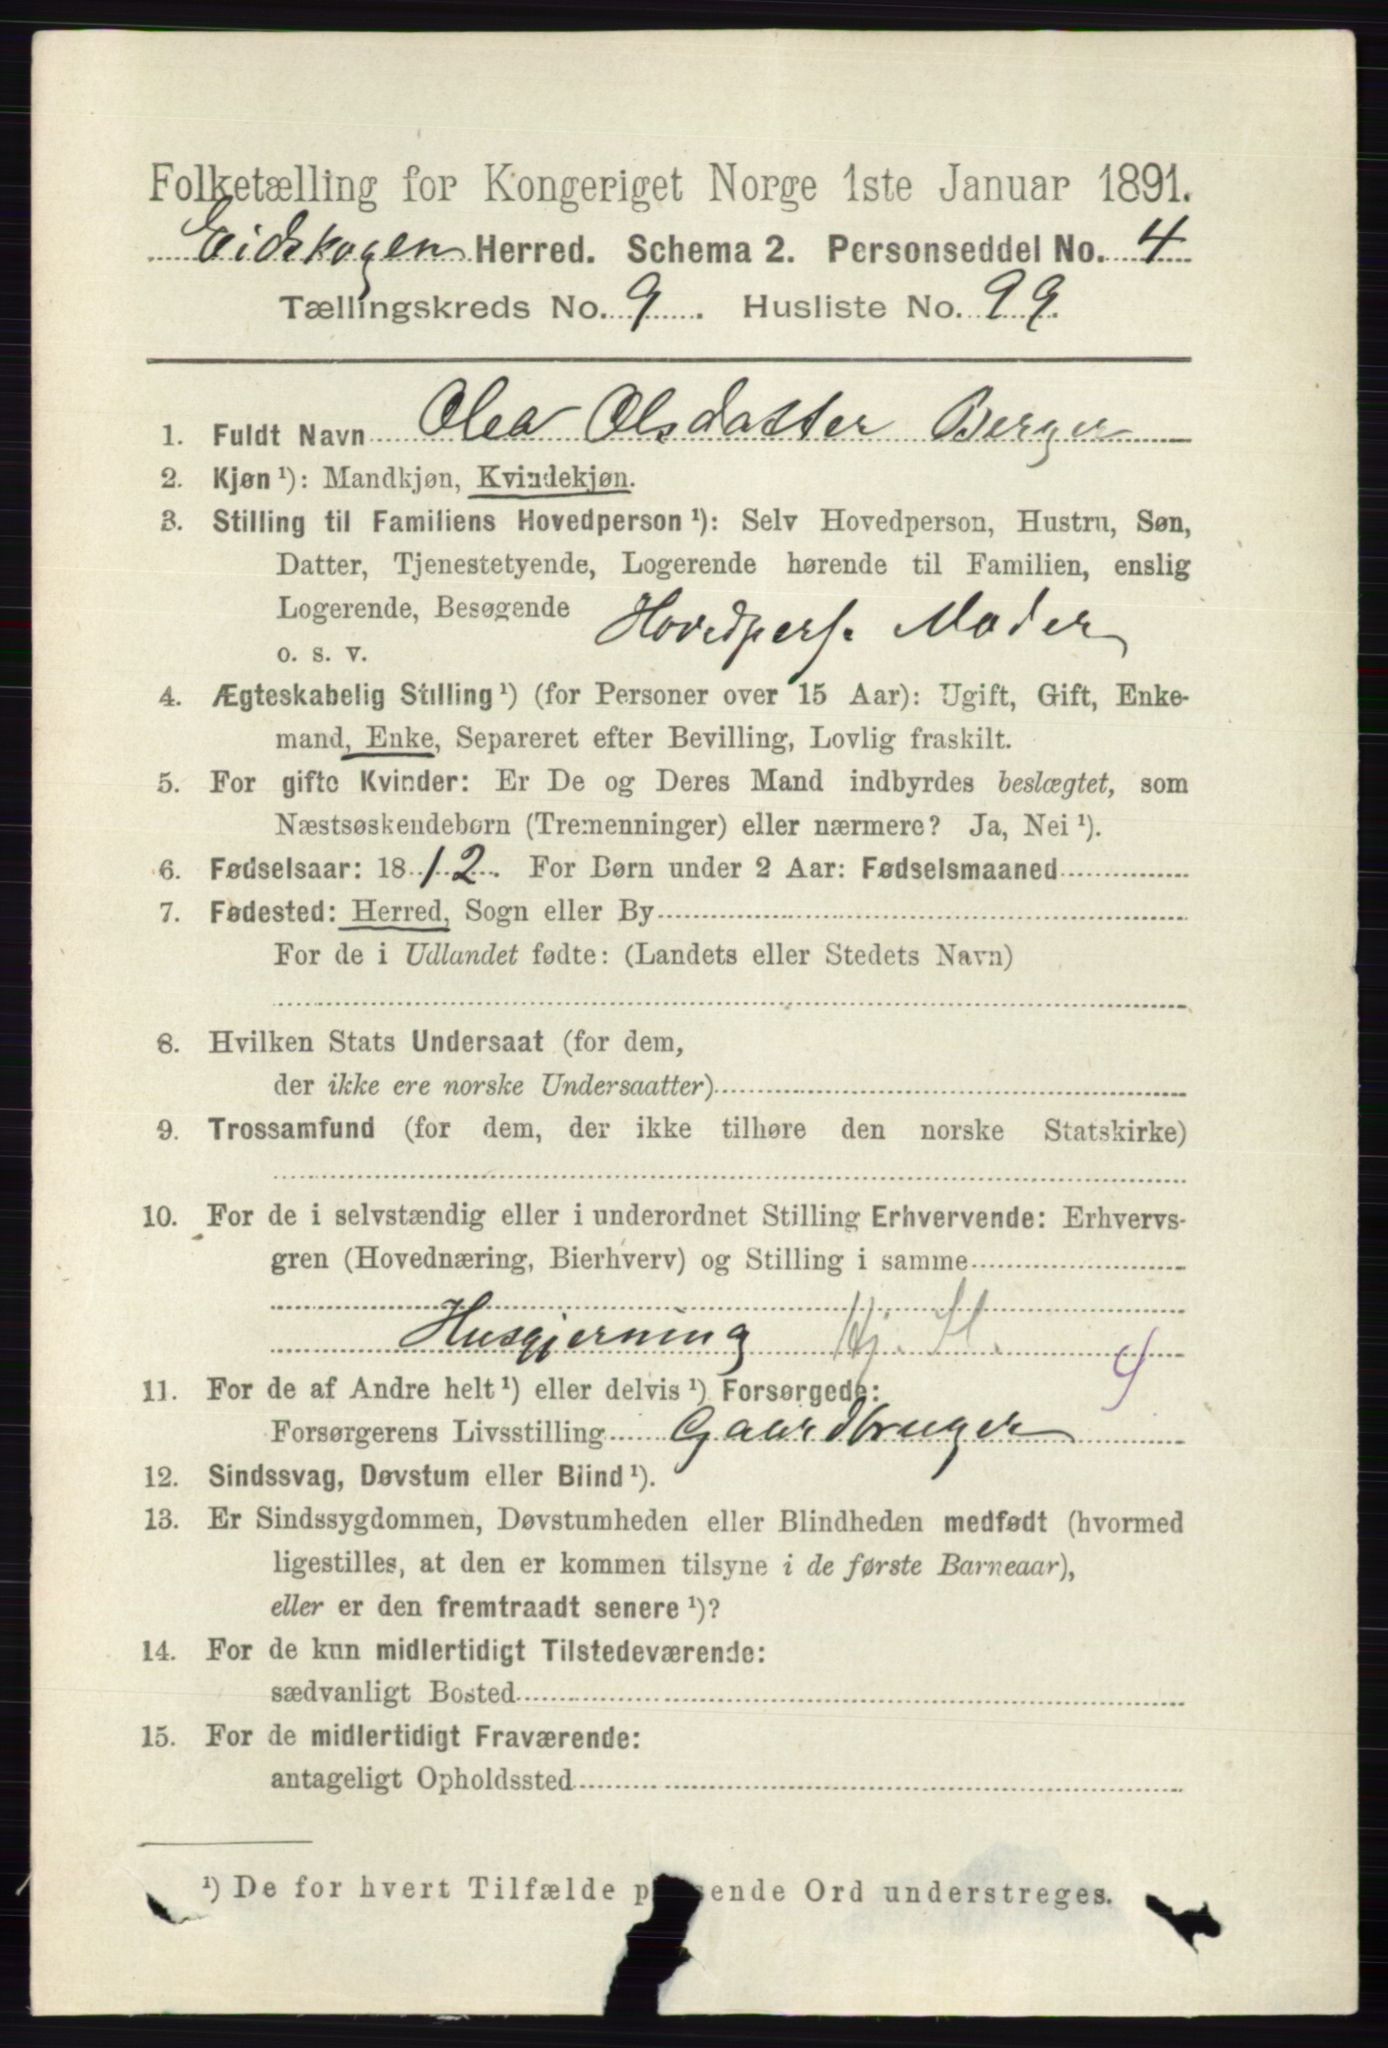 Folketælling for Kongeriget Norge 1ste Januar 1891.
Eidskogen Herred. Schema 2. Personseddel No. 4
Tællingskreds No. 9. Husliste No. 99
1. Fuldt Navn Olea Olsdatter Berger
2. Kjøn ¹): Mandkjøn, Kvindekjøn.
3. Stilling til Familiens Hovedperson ¹): Selv Hovedperson, Hustru, Søn,
Datter, Tjenestetyende, Logerende hørende til Familien, enslig
Logerende, Besøgende
o. s. v. Hovedpers. Moder
4. Ægteskabelig Stilling ¹) (for Personer over 15 Aar): Ugift, Gift, Enke-
mand, Enke, Separeret efter Bevilling, Lovlig fraskilt.
5. For gifte Kvinder: Er De og Deres Mand indbyrdes beslægtet, som
Næstsøskendebørn (Tremenninger) eller nærmere? Ja, Nei ¹).
6. Fødselsaar: 1812. For Børn under 2 Aar: Fødselsmaaned
7. Fødested: Herred, Sogn eller By
For de i Udlandet fødte: (Landets eller Stedets Navn)
8. Hvilken Stats Undersaat (for dem,
der ikke ere norske Undersaatter)
9. Trossamfund (for dem, der ikke tilhøre den norske Statskirke)
10. For de i selvstændig eller i underordnet Stilling Erhvervende: Erhvervs-
gren (Hovednæring, Bierhverv) og Stilling i samme
Husgjerning Hj. H. 4
11. For de af Andre helt ¹) eller delvis ¹) Forsørgede:
Forsørgerens Livsstilling Gaardbruger
12. Sindssvag, Døvstum eller Blind ¹).
13. Er Sindssygdommen, Døvstumheden eller Blindheden medfødt (hvormed
ligestilles, at den er kommen tilsyne i de første Barneaar),
eller er den fremtraadt senere ¹)?
14. For de kun midlertidigt Tilstedeværende:
sædvanligt Bosted
15. For de midlertidigt Fraværende:
antageligt Opholdssted
¹) De for hvert Tilfælde p sende Ord understreges.